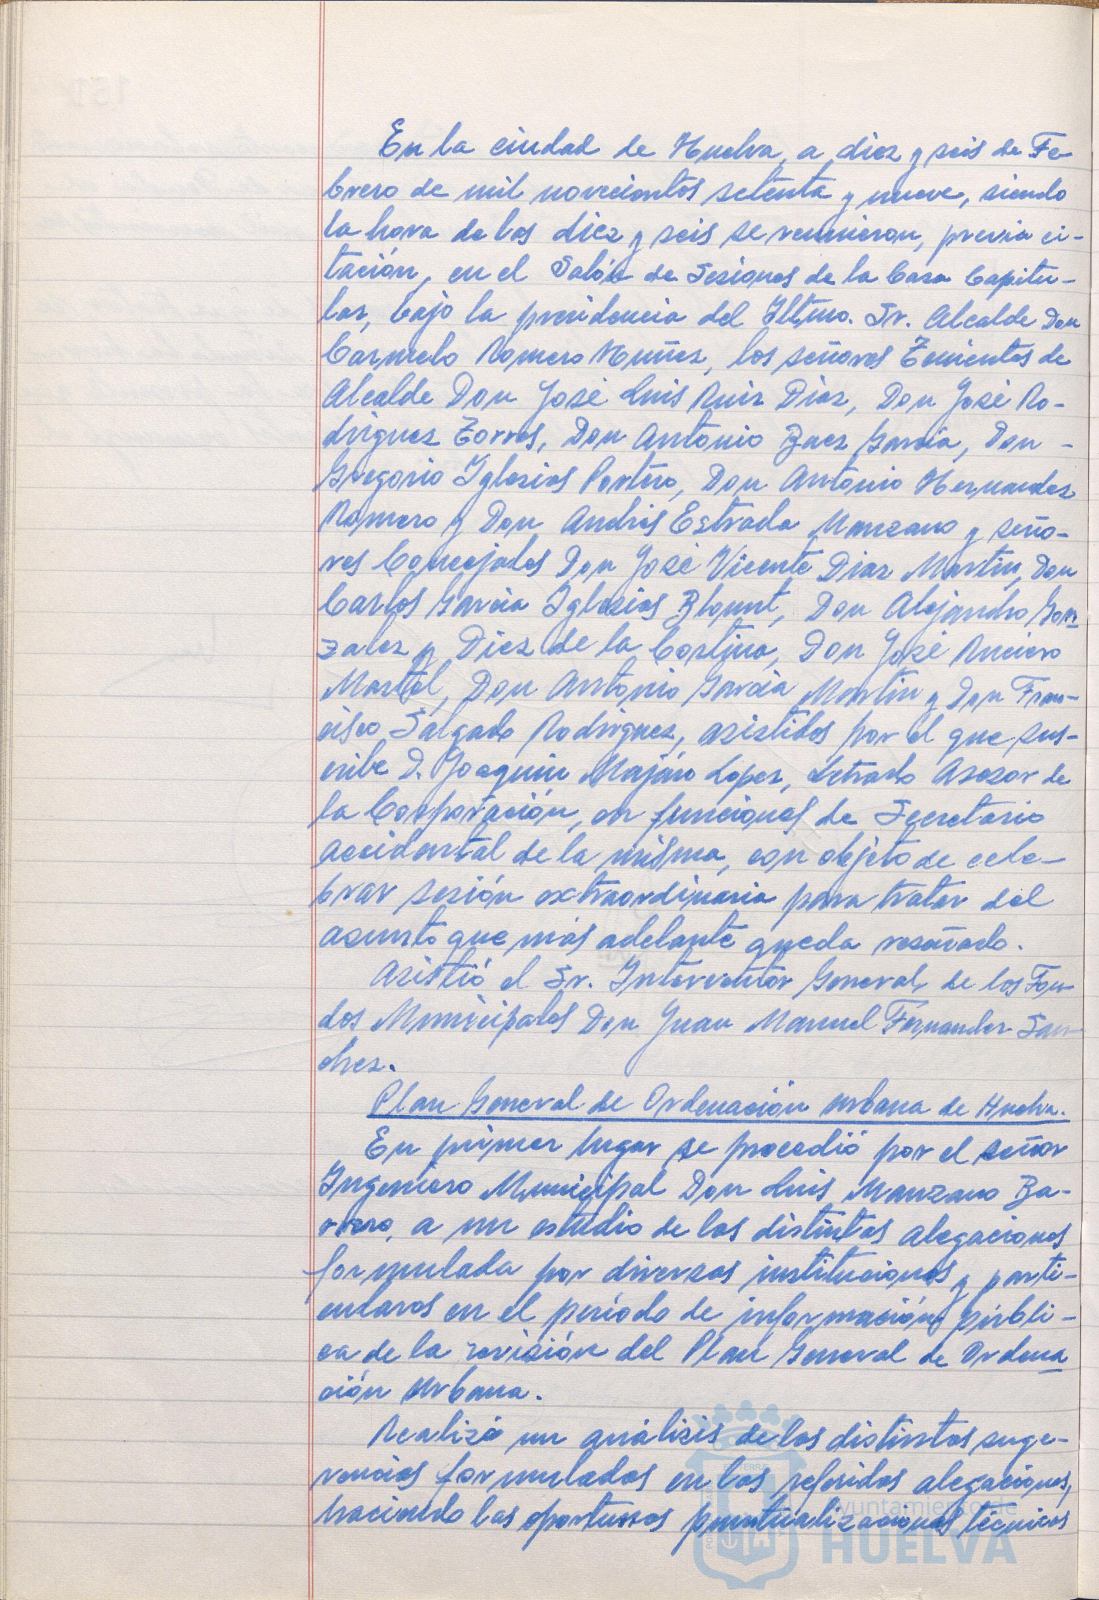 En la ciudad de Huelva, a diez y seis de Fe-
brero de mil novecientos setenta y nueve, siendo
la hora de las diez y seis se reunieron, previa ci-
tación, en el Salón de Sesiones de la Casa Capitu-
lar, bajo la presidencia del Iltmo. Sr. Alcalde Don
Carmelo Romero Nuñez, los señores Tenientes de
Alcalde Don José Luis Ruiz Diaz, Don José Ro-
driguez Torres, Don Antonio Baez Garcia, Don -
Gregorio Iglesias Portero, Don Antonio Hernandez
Romero y Don Andrés Estrada Manzano y seño-
res Concejales Don José Vicente Diaz Martin, Don
Carlos Garcia Iglesias Blount, Don Alejandro Gon
zalez y Diez de la Cortina, Don José Ruciero
Martel, Don Antonio Garcia Martin y Don Fran-
cisco Salgado Rodriguez, asistidos por el que sus-
cribe D. Joaquin Maján Lopez, Letrado Asesor de
la Corporación, en funciones de Secretario
accidental de la misma, con objeto de cele-
brar sesión extraordinaria para tratar del
asunto que más adelante queda reseñado.
Asistió el Sr. Interventor General de los Fon-
dos Municipales Don Juan Manuel Fernandez San
chez.
Plan General de Ordenación urbana de Huelva.
En primer lugar se procedió por el señor
Ingeniero Municipal Don Luis Manzano Ba-
rrero, a un estudio de las distintas alegaciones
formulada por diversas instituciones y parti-
culares en el período de información públi-
ca de la revisión del Plan General de Ordena
ción Urbana.
Realizó un análisis de las distintas suge-
rencias formuladas en las referidas alegaciones,
haciendo las oportunas puntualizaciones técnicas
Ayuntamiento de
HUELVA